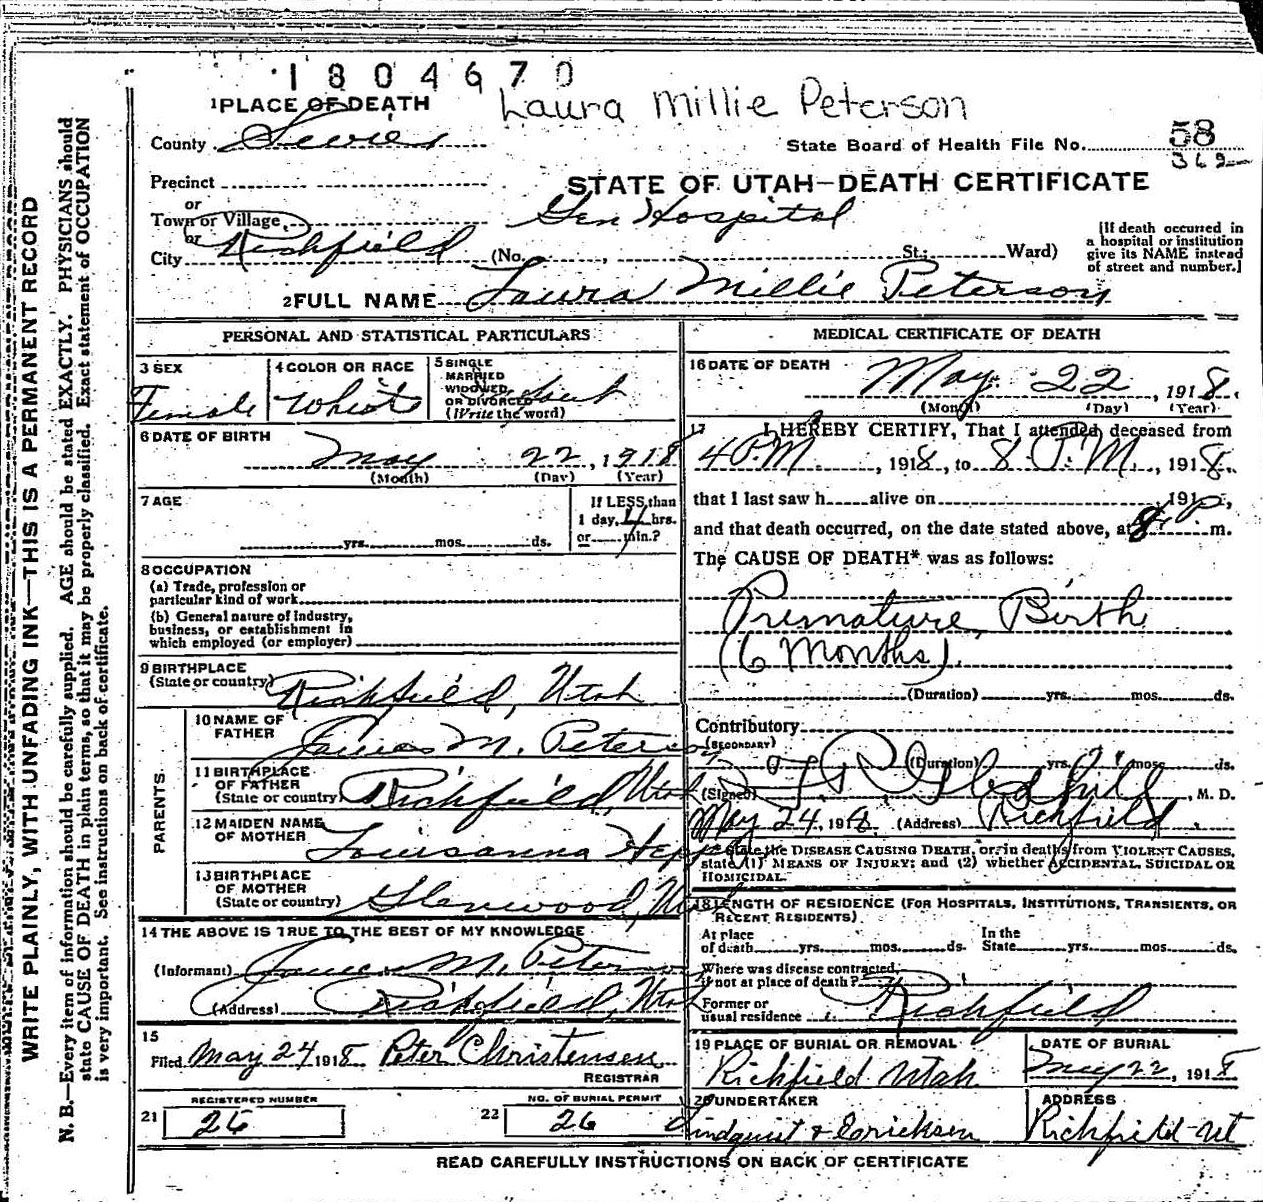 1804670
1PLACE OF DEATH Laura Millie Peterson
County Sevier
State Board of Health File No. 58
362
Precinct
STATE OF UTAH—DEATH CERTIFICATE
or
Town or Village Gen Hospital
or
City Richfield (No. , St.; Ward)
[If death occurred in a hospital or institution give its NAME instead of street and number.]
2FULL NAME Laura Millie Peterson
WRITE PLAINLY, WITH UNFADING INK—THIS IS A PERMANENT RECORD
N. B.—Every item of information should be carefully supplied. AGE should be stated EXACTLY. PHYSICIANS should
state CAUSE OF DEATH in plain terms, so that it may be properly classified. Exact statement of OCCUPATION
is very important. See instructions on back of certificate.
PERSONAL AND STATISTICAL PARTICULARS
3 SEX
Female
4 COLOR OR RACE
White
5 SINGLE
MARRIED
WIDOWED
OR DIVORCED
(Write the word)
6 DATE OF BIRTH
May 22, 1918
(Month) (Day) (Year)
7 AGE
yrs. mos. ds.
If LESS than
1 day, 4 hrs.
or min.?
8 OCCUPATION
(a) Trade, profession or
particular kind of work
(b) General nature of industry,
business, or establishment in
which employed (or employer)
9 BIRTHPLACE
(State or country) Richfield, Utah
PARENTS
10 NAME OF
FATHER James M. Peterson
11 BIRTHPLACE
OF FATHER
(State or country) Richfield, Utah
12 MAIDEN NAME
OF MOTHER Louisanna
13 BIRTHPLACE
OF MOTHER
(State or country) Glenwood, Utah
14 THE ABOVE IS TRUE TO THE BEST OF MY KNOWLEDGE
(Informant) James M. Peterson
(Address) Richfield, Utah
15
Filed May 24 1918 Peter Christensen
REGISTRAR
REGISTERED NUMBER
21 26
NO. OF BURIAL PERMIT
22 26
MEDICAL CERTIFICATE OF DEATH
16 DATE OF DEATH
May 22, 1918.
(Month) (Day) (Year)
17 I HEREBY CERTIFY, That I attended deceased from
4 P.M., 1918, to 8 P.M., 1918,
that I last saw h alive on , 191 ,
and that death occurred, on the date stated above, at 8 P m.
The CAUSE OF DEATH* was as follows:
Premature Birth
(6 Months).
(Duration) yrs. mos. ds.
Contributory
(SECONDARY)
(Duration) yrs. mos. ds.
(Signed) Gledhill, M. D.
May 24, 1918 (Address) Richfield
*State the DISEASE CAUSING DEATH, or, in deaths from VIOLENT CAUSES,
state (1) MEANS OF INJURY; and (2) whether ACCIDENTAL, SUICIDAL OR
HOMICIDAL.
18 LENGTH OF RESIDENCE (FOR HOSPITALS, INSTITUTIONS, TRANSIENTS, OR
RECENT RESIDENTS)
At place of death yrs. mos. ds. In the State yrs. mos. ds.
Where was disease contracted,
if not at place of death?
Former or
usual residence Richfield
19 PLACE OF BURIAL OR REMOVAL
Richfield Utah
DATE OF BURIAL
May 22, 1918
20 UNDERTAKER
Lindquist & Ericksen
ADDRESS
Richfield Ut
READ CAREFULLY INSTRUCTIONS ON BACK OF CERTIFICATE